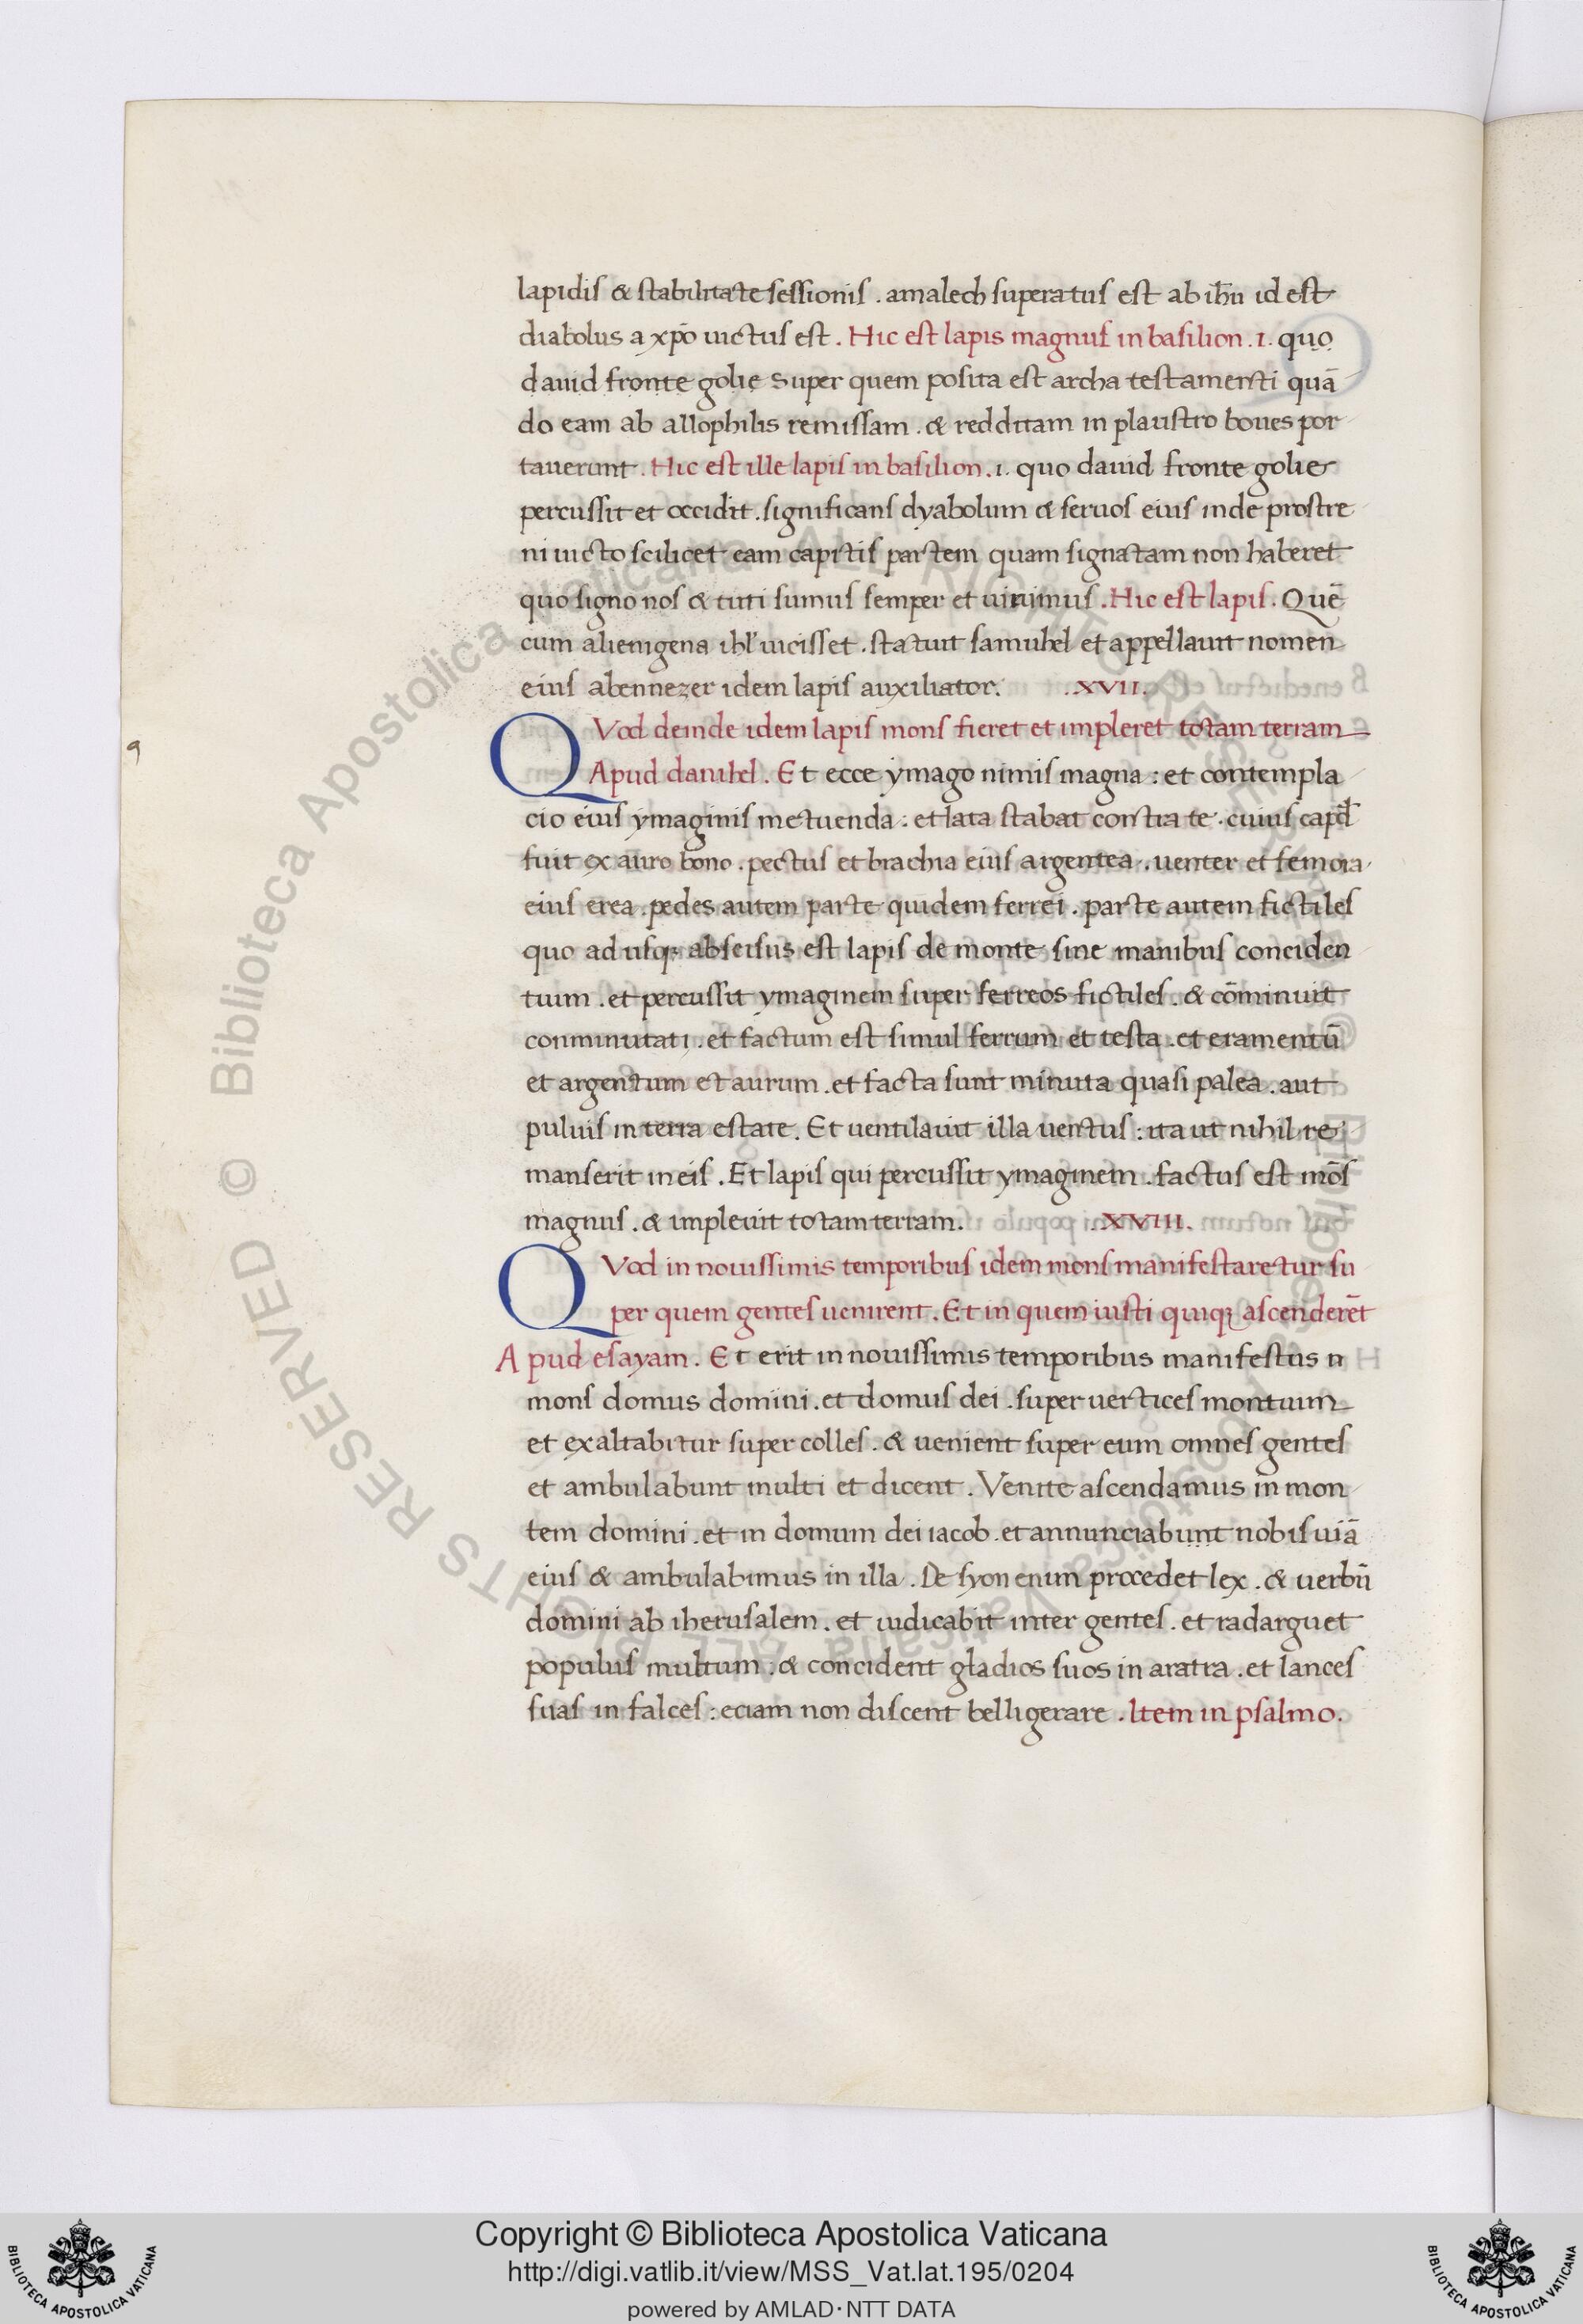 lapidis & stabilitate sessionis . amalech superatus est ab ihū id est
diabolus a xp̄o uictus est . Hic est lapis magnus in basilion . 1 . quo
dauid fronte golie super quem posita est archa testamenti quā
do eam ab allophilis remissam . & redditam in plaustro boues por
tauerunt . Hic est ille lapis in basilion . 1 . quo dauid fronte golie
percussit et occidit . significans dyabolum & seruos eius inde prostre
ni uicto scilicet eam capitis partem quam signatam non haberet
quo signo nos & tuti sumus semper et uiuimus . Hic est lapis . Quē
cum alienigena ihl' uicisset . statuit samuhel et appellauit nomen
eius abennezer idem lapis auxiliator. .XVII.
QVod deinde idem lapis mons fieret et impleret totam terram
Apud danihel . Et ecce ymago nimis magna : et contempla
cio eius ymaginis metuenda : et lata stabat contra te . cuius capd̄
fuit ex auro bono . pectus et brachia eius argentea . uenter et femora
eius erea . pedes autem parte quidem ferrei . parte autem fictiles
quo ad usq; abscisus est lapis de monte sine manibus conciden
tium . et percussit ymaginem super ferreos fictiles . & cōminuit
conminutati . et factum est simul ferrum et testa . et eramentū
et argentum et aurum . et facta sunt minuta quasi palea . aut
puluis in terra estate . Et uentilauit illa uentus : ita ut nihil re
manserit in eis . Et lapis qui percussit ymaginem . factus est mōs
magnus . & impleuit totam terram. .XVIII.
QVod in nouissimis temporibus idem mons manifestaretur su
per quem gentes uenirent . Et in quem iusti quiq; ascenderēt
Apud esayam . Et erit in nouissimis temporibus manifestus n
mons domus domini . et domus dei . super uertices montium
et exaltabitur super colles . & uenient super eum omnes gentes
et ambulabunt multi et dicent . Venite ascendamus in mon
tem domini . et in domum dei iacob . et annunciabunt nobis uiā
eius & ambulabimus in illa . De syon enim procedet lex . & uerbū
domini ab iherusalem . et iudicabit inter gentes . et radarguet
populus multum : & concident gladios suos in aratra . et lances
suas in falces : eciam non discent belligerare . Item in psalmo .
9
© Biblioteca Apostolica Vaticana ALL RIGHTS RESERVED © Biblioteca Apostolica Vaticana ALL RIGHTS RESERVED
Copyright © Biblioteca Apostolica Vaticana
http://digi.vatlib.it/view/MSS_Vat.lat.195/0204
powered by AMLAD·NTT DATA
BIBLIOTECA APOSTOLICA VATICANA
BIBLIOTECA APOSTOLICA VATICANA